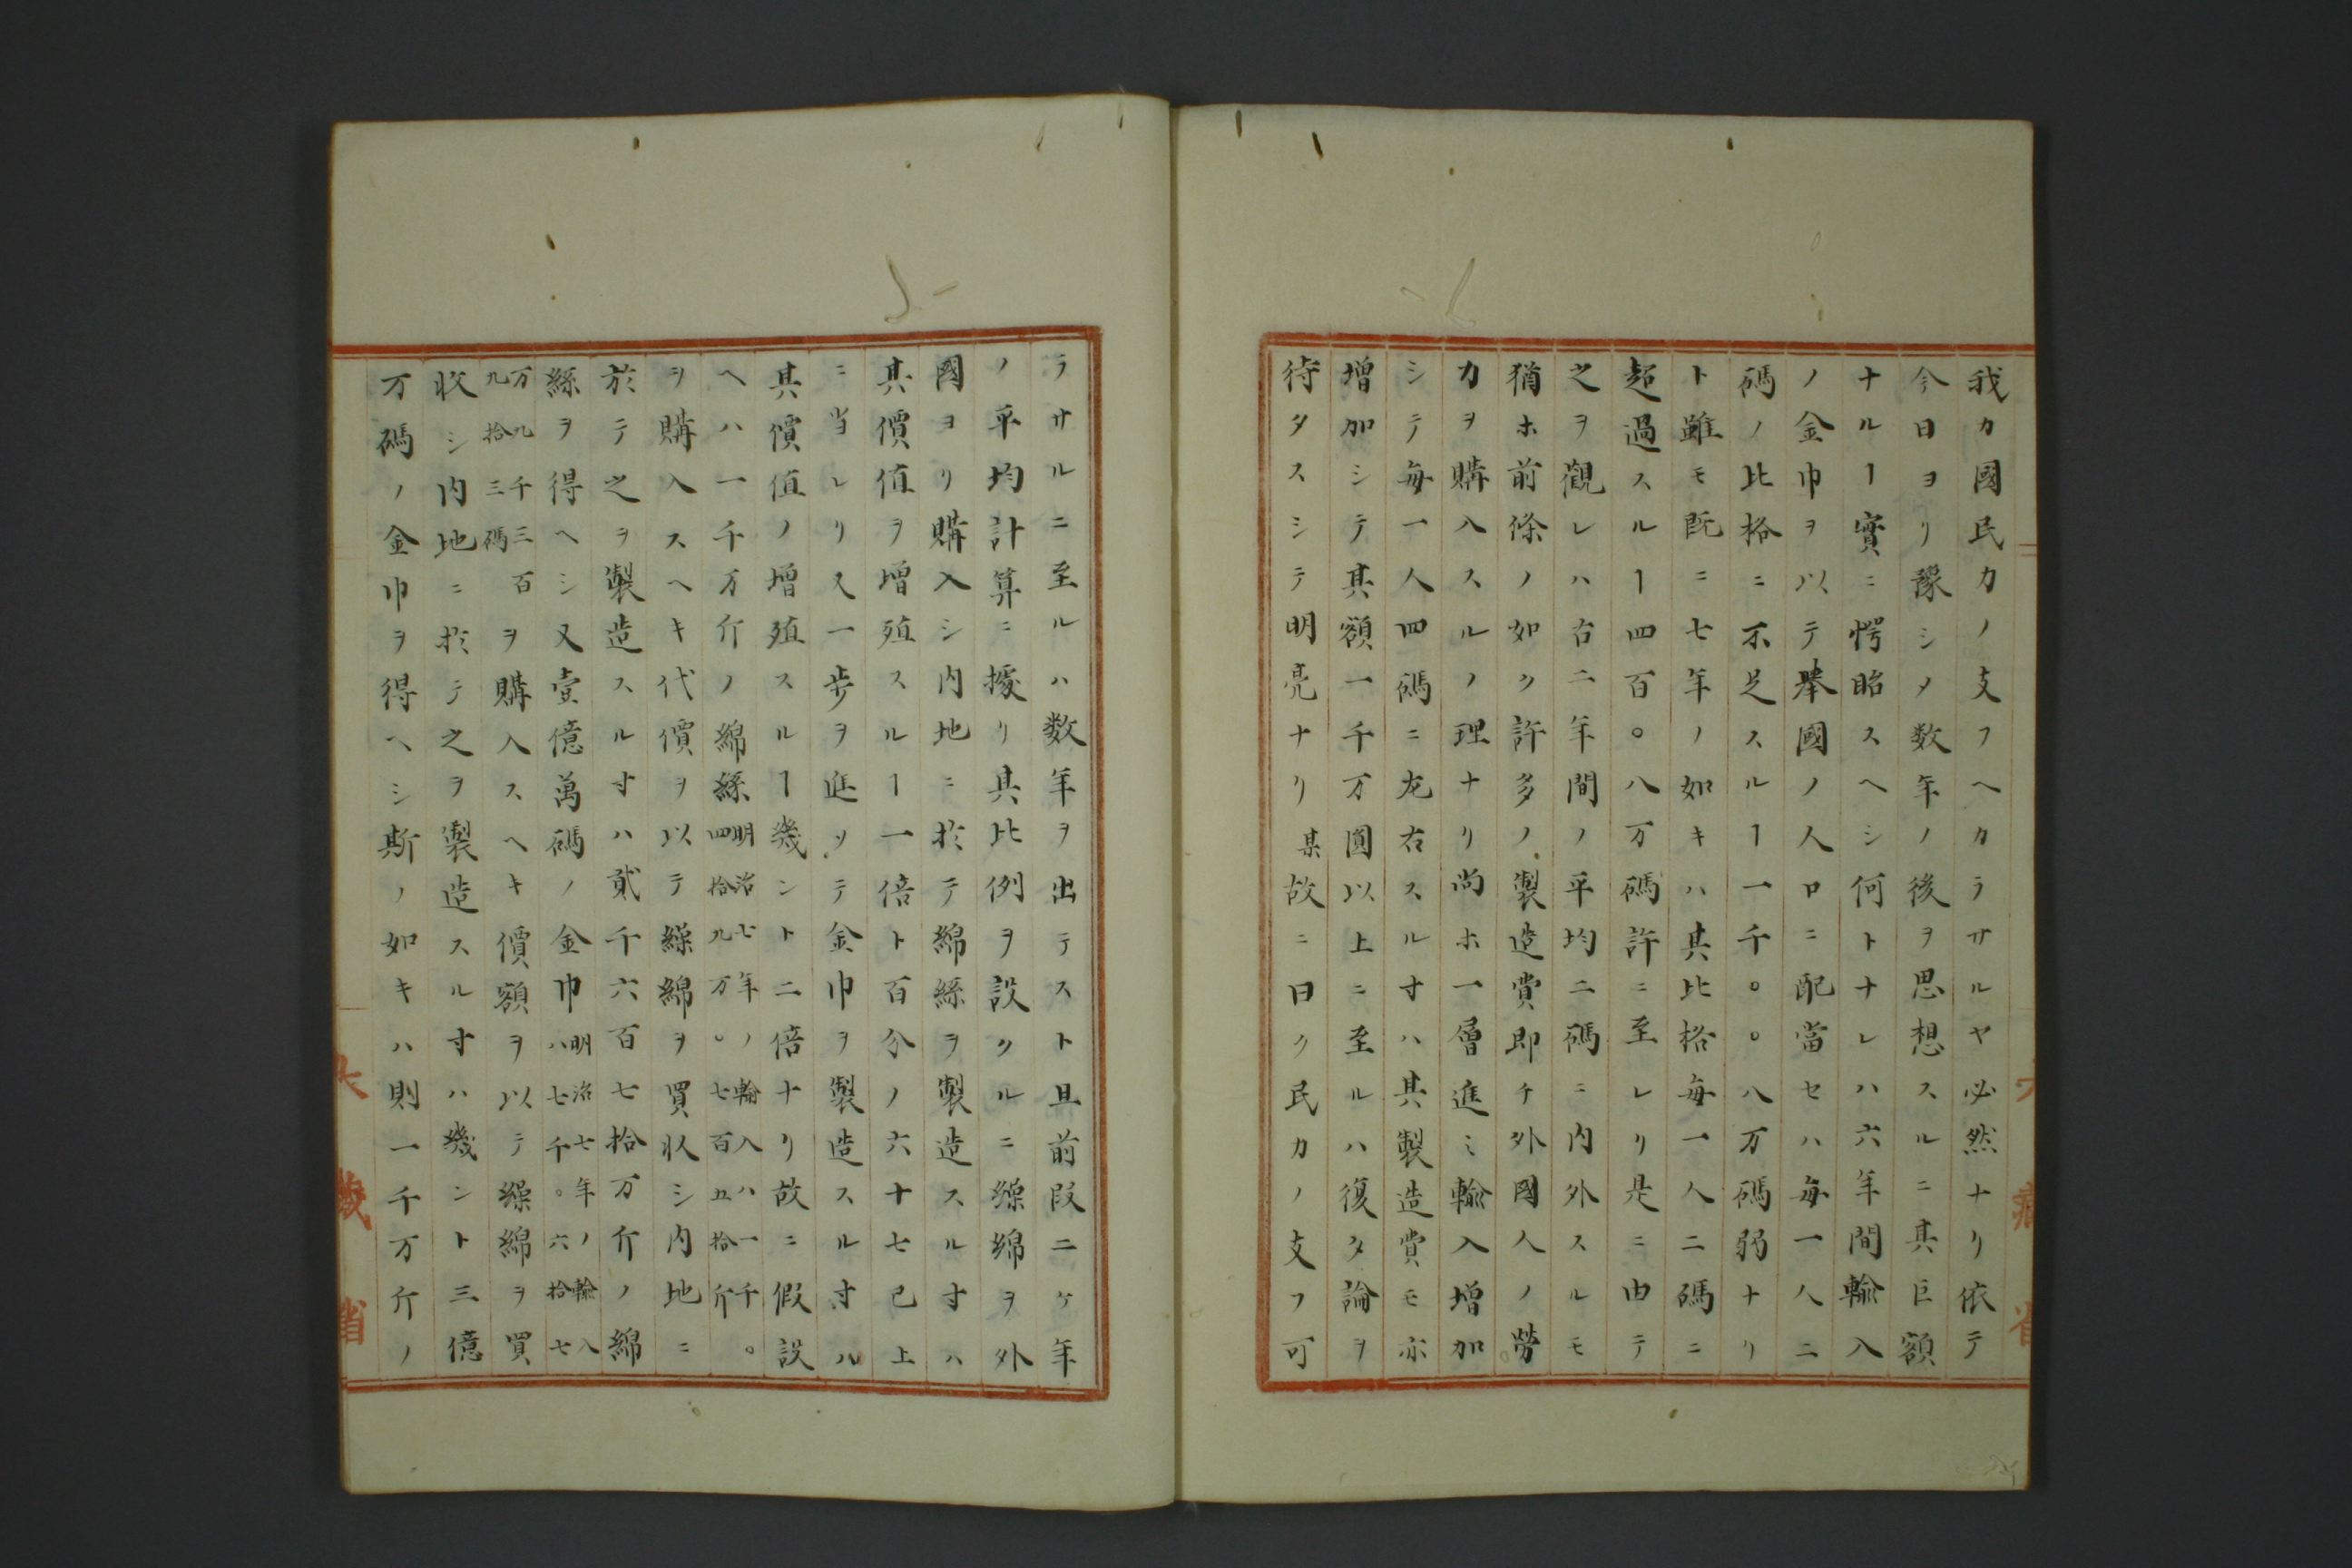 我カ國民力ノ支フヘカラサルヤ必然ナリ依テ
今日ヨリ豫シメ数年ノ後ヲ思想スルニ其巨額
ナルヿ實ニ愕眙スヘシ何トナレハ六年間輸入
ノ金巾ヲ以テ擧國ノ人口ニ配當セハ毎一人二
碼ノ比格ニ不足スルヿ一千〇〇八万碼弱ナリ
ト雖モ既ニ七年ノ如キハ其比格毎一人二碼ニ
超過スルヿ四百〇八万碼許ニ至レリ是ニ由テ
之ヲ觀レハ右二年間ノ平均二碼ニ内外スルモ
猶ホ前條ノ如ク許多ノ製造賞即チ外國人ノ勞
力ヲ購入スルノ理ナリ尚ホ一層進ミ輸入増加
シテ毎一人四碼ニ左右スル寸ハ其製造賞モ亦
増加シテ其額一千万圓以上ニ至ルハ復タ論ヲ
待タスシテ明亮ナリ某故ニ曰ク民力ノ支フ可
ラサルニ至ルハ数年ヲ出テスト且前段二ヶ年
ノ平均計算ニ據リ其比例ヲ設クルニ繰綿ヲ外
國ヨリ購入シ内地ニ於テ綿絲ヲ製造スル寸ハ
其價値ヲ増殖スルヿ一倍ト百分ノ六十七已上
ニ当レリ又一歩ヲ進ツテ金巾ヲ製造スル寸ハ
其價値ノ増殖スルヿ幾ント二倍ナリ故ニ假設
ヘハ一千万斤ノ綿絲明治七年ノ輸入ハ一千〇四拾九万〇七百五拾斤
ヲ購入スヘキ代價ヲ以テ繰綿ヲ買收シ内地ニ
於テ之ヲ製造スル寸ハ貳千六百七拾万斤ノ綿
絲ヲ得ヘシ又壹億萬碼ノ金巾明治七年ノ輸入ハ七千〇六拾七
万九千三百九拾三碼ヲ購入スヘキ價額ヲ以テ繰綿ヲ買
收シ内地ニ於テ之ヲ製造スル寸ハ幾ント三億
万碼ノ金巾ヲ得ヘシ斯ノ如キハ則一千万斤ノ
大藏省